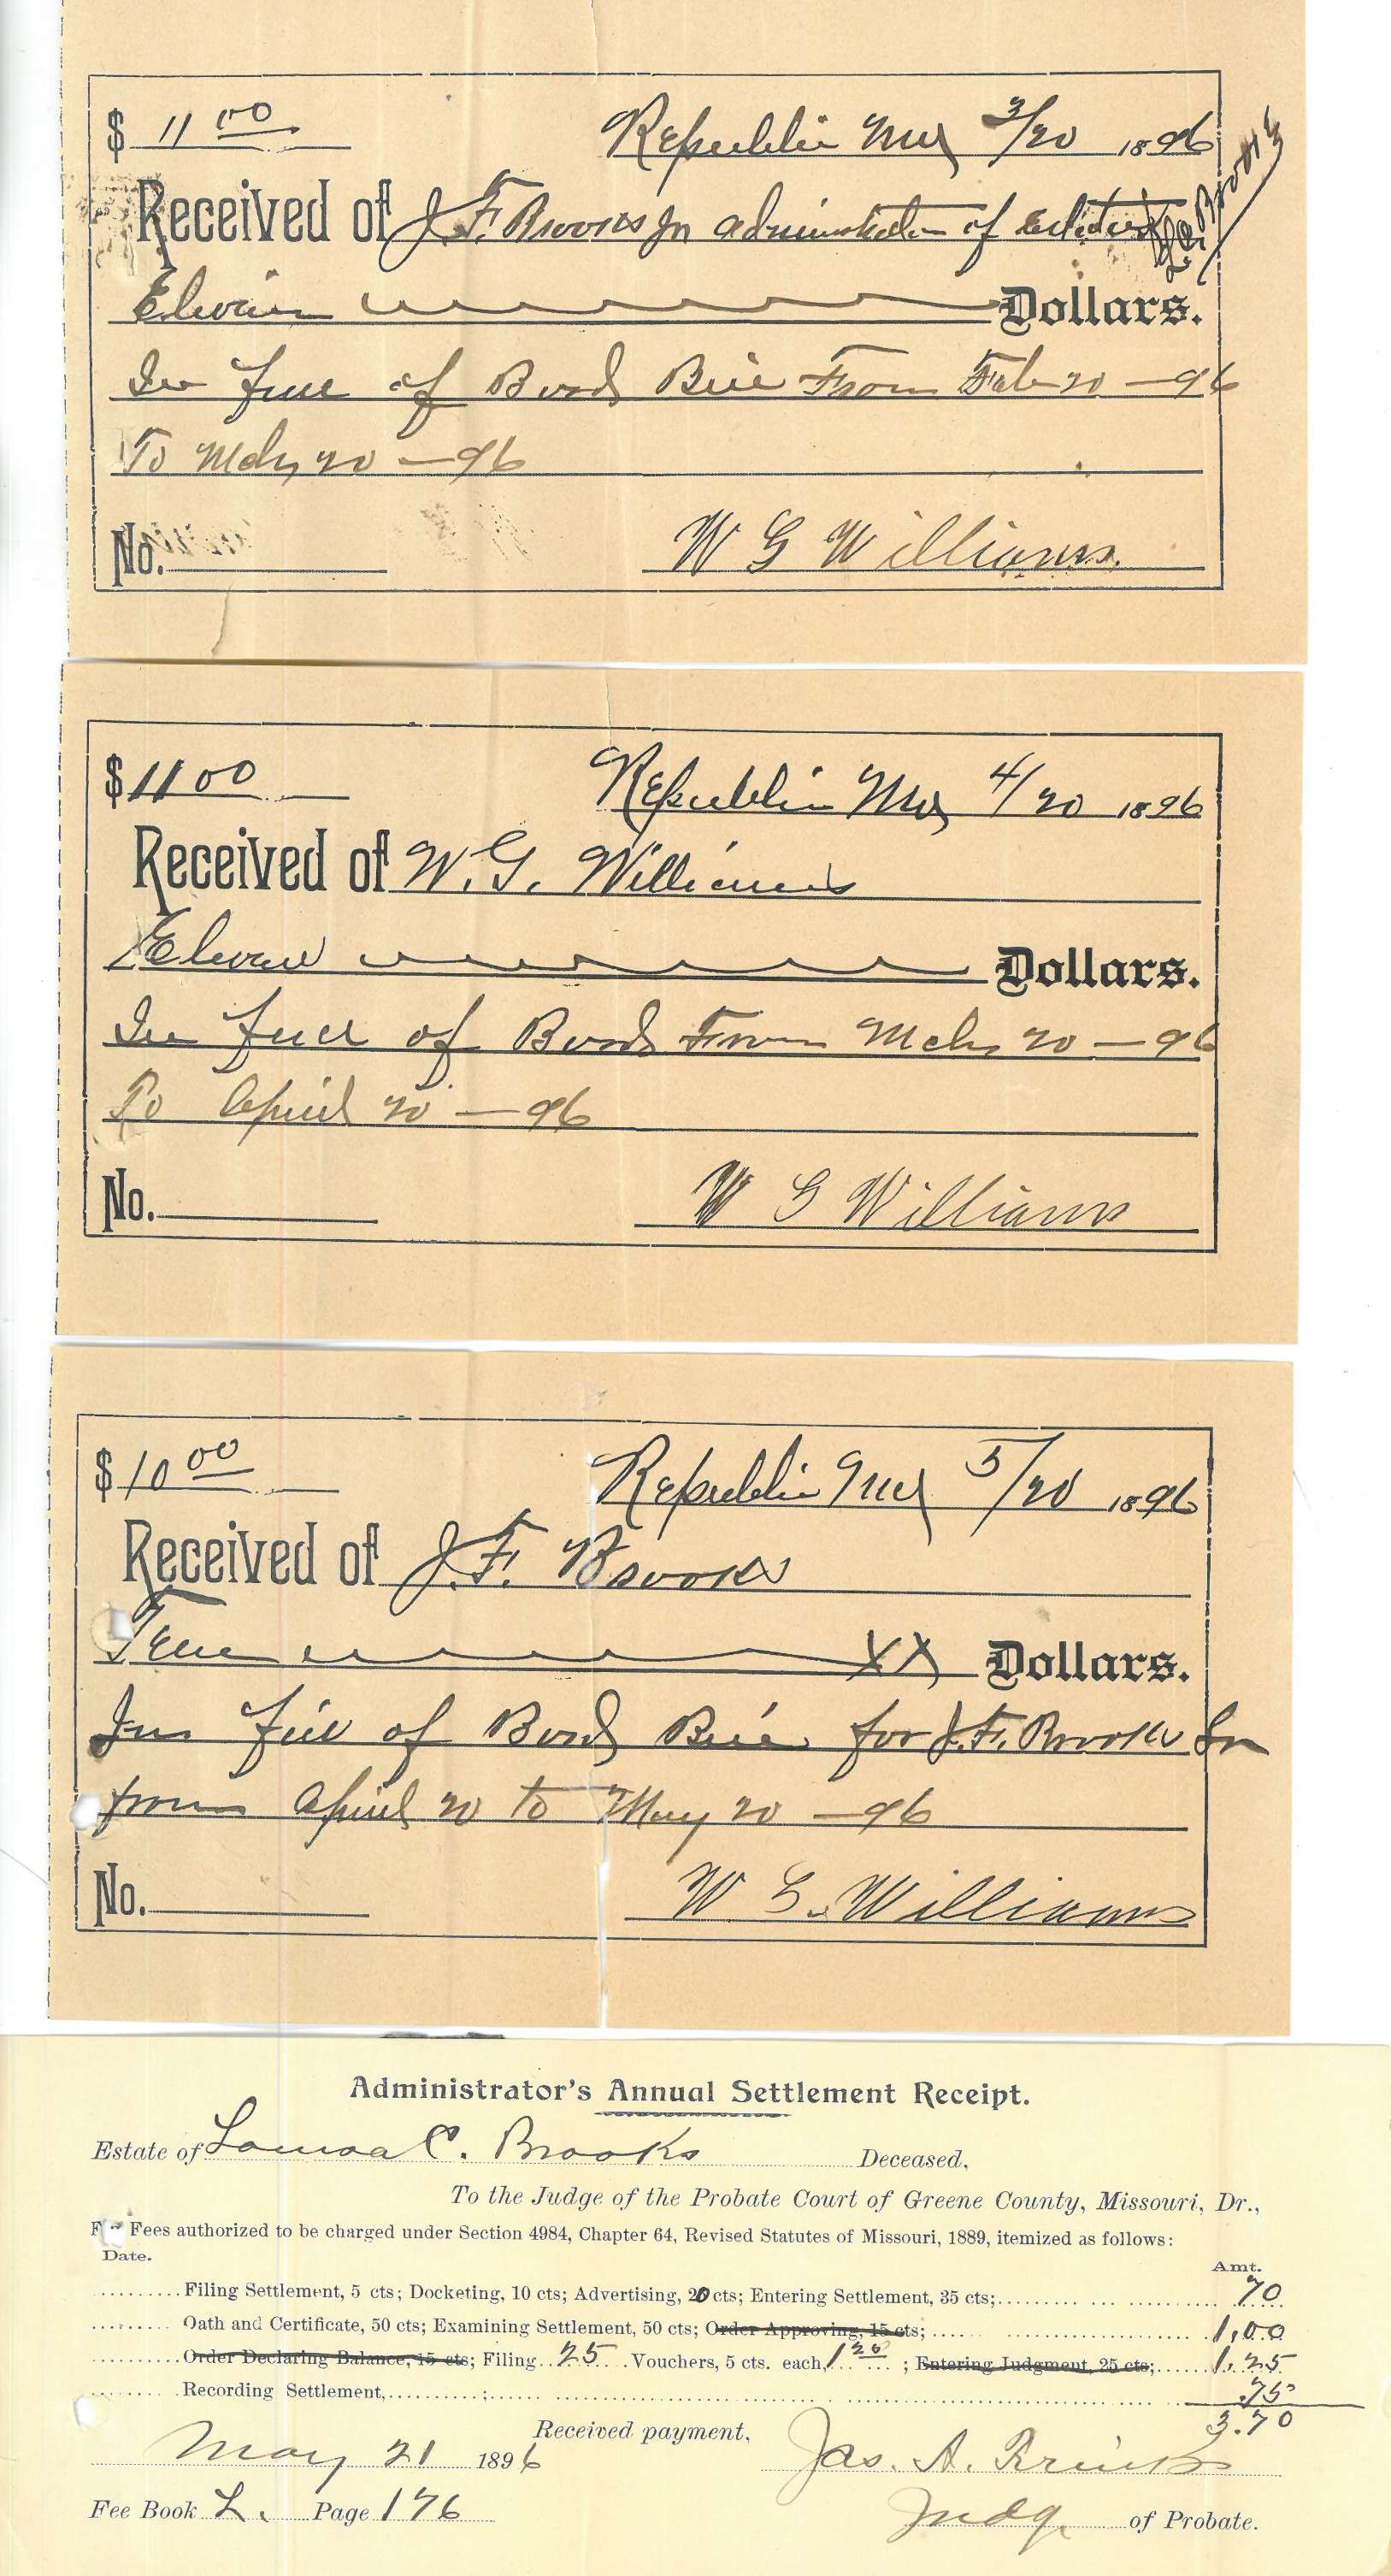 $ 11 00 Republic Mo 3/20 1896
Received of J. F. Brooks Jr administrator of Estate
Brooks
Eleven Dollars.
In full of Bord Bill From Feb 20 - 96
To Mch 20 - 96
No. W G Williams.
$ 11 00 Republic Mo 4/20 1896
Received of W. G. Williams
Eleven Dollars.
In full of Bord From Mch 20 - 96
To April 20 - 96
No. W G Williams
$ 10 00 Republic Mo 5/20 1896
Received of J. F. Brooks
Tenn XX Dollars.
In full of Bord Bill for J. F. Brooks Sr
from April 20 to May 20 - 96
No. W G. Williams
Administrator's Annual Settlement Receipt.
Estate of C. Brooks Deceased,
To the Judge of the Probate Court of Greene County, Missouri, Dr.,
For Fees authorized to be charged under Section 4984, Chapter 64, Revised Statutes of Missouri, 1889, itemized as follows:
Date. Amt.
Filing Settlement, 5 cts; Docketing, 10 cts; Advertising, 20 cts; Entering Settlement, 35 cts; 70
Oath and Certificate, 50 cts; Examining Settlement, 50 cts; Order Approving, 15 cts; 1,00
Order Declaring Balance, 15 cts; Filing 25 Vouchers, 5 cts. each, ; Entering Judgment, 25 cts; 1.25
Recording Settlement, .75
3.70
Received payment,
May 21 1896 Jas. A.
Fee Book L. Page 176 Judge of Probate.